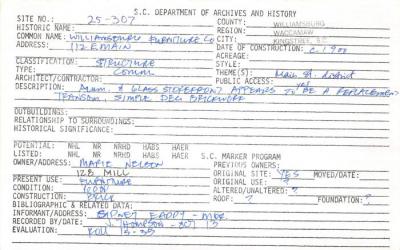 S.C. DEPARTMENT OF ARCHIVES AND HISTORY
SITE NO.: 25-307 COUNTY: WILLIAMSBURG
HISTORIC NAME: REGION: WACCAMAW
COMMON NAME: WILLIAMSBURG FURNITURE CO CITY: KINGSTREE, S.C.
ADDRESS: 112 E MAIN DATE OF CONSTRUCTION: C. 1900
ACREAGE:
CLASSIFICATION: STRUCTURE STYLE:
TYPE: Comm THEME(S): Main St. district
ARCHITECT/CONTRACTOR: PUBLIC ACCESS: yes
DESCRIPTION: Alum. & GLASS STOREFRONT APPEARS TO BE A REPLACEMENT
TRANSOM, SIMPLE DEC BRICKWORK
OUTBUILDINGS:
RELATIONSHIP TO SURROUNDINGS:
HISTORICAL SIGNIFICANCE:
POTENTIAL: NHL NR NRHD HABS HAER
LISTED: NHL NR NRHD HABS HAER S.C. MARKER PROGRAM
OWNER/ADDRESS: MARIE NELSON PREVIOUS OWNERS:
128 MILL ORIGINAL SITE: YES MOVED/DATE:
PRESENT USE: FURNITURE ORIGINAL USE: ?
CONDITION: GOOD ALTERED/UNALTERED: ?
CONSTRUCTION: BRICK ROOF: ? FOUNDATION: ?
BIBLIOGRAPHIC & RELATED DATA:
INFORMANT/ADDRESS: SIDNEY EADDY - MGR
RECORDED BY/DATE: J. THOMPSON
EVALUATION: ROLL